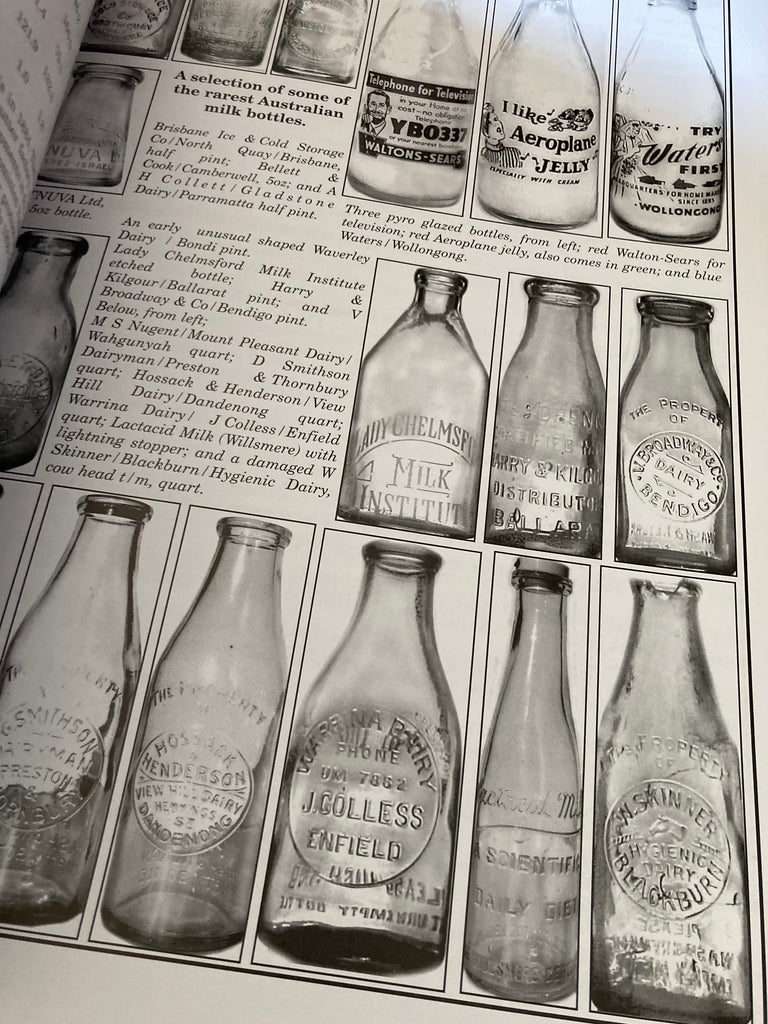 A selection of some of
the rarest Australian
milk bottles.
Brisbane Ice & Cold Storage
Co/North Quay/Brisbane,
half pint; Bellett &
Cook/Camberwell, 5oz; and A
H Collett/Gladstone
Dairy/Parramatta half pint.
NUVA Ltd,
5oz bottle.
Telephone for Televisi
in your Home at
cost-no obligation
Telephone
YB0337
or your nearest
WALTONS-SEARS
I like
Aeroplane
JELLY
ESPECIALLY WITH CREAM
TRY
Waters
FIRST
HEADQUARTERS FOR HOME
SINCE 1895
WOLLONGONG
Three pyro glazed bottles, from left; red Walton-Sears for
television; red Aeroplane jelly, also comes in green; and blue
Waters/Wollongong.
An early unusual shaped Waverley
Dairy / Bondi pint.
Lady Chelmsford Milk Institute
etched bottle; Harry &
Kilgour/Ballarat pint; and V
Broadway & Co/Bendigo pint.
Below, from left;
M S Nugent/Mount Pleasant Dairy/
Wahgunyah quart; D Smithson
Dairyman/Preston & Thornbury
quart; Hossack & Henderson/View
Hill Dairy/Dandenong quart;
Warrina Dairy/ J Colless/Enfield
quart; Lactacid Milk (Willsmere) with
lightning stopper; and a damaged W
Skinner/Blackburn/Hygienic Dairy,
cow head t/m, quart.
LADY CHELMSF
MILK
INSTITUT
ARRY & KILGO
DISTRIBUTO
BALLARA
THE PROPERTY
OF
V. BROADWAY & CO
DAIRY
BENDIGO
SMITHSON
DAIRYMAN
PRESTON
THE PROPERTY
OF
HOSSACK
&
HENDERSON
VIEW HILL DAIRY
HEMMINGS
ST
DANDENONG
WARRINA DAIRY
PHONE
UM 7862
J. COLLESS
ENFIELD
A SCIENTIFIC
DAILY DIET
THE PROPERTY
OF
W. SKINNER
HYGIENIC
DAIRY
BLACKBURN